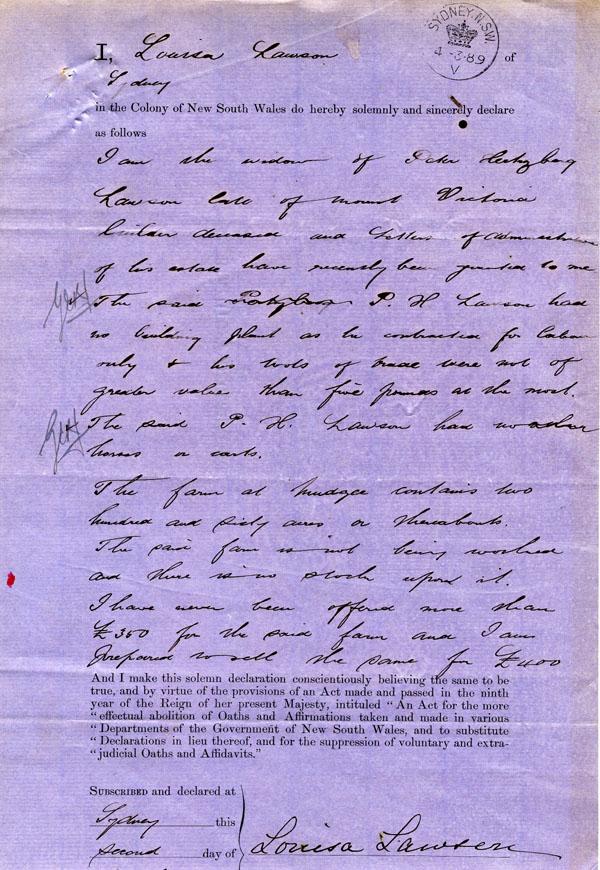 SYDNEY. N.S.W.
4 - 3. 89
V
I, Louisa Lawson of
Sydney
in the Colony of New South Wales do hereby solemnly and sincerely declare
as follows
I am the widow of Peter Hertzberg
Lawson late of Mount Victoria
deceased and Letters of Administration
of his estate have recently been granted to me
The said P. H Lawson had
no building plant as he contracted for labour
only & his tools of trade were not of
greater value than five pounds at the most.
The said P. H. Lawson had no other
horses or carts.
The farm at Mudgee contains two
hundred and sixty acres or thereabouts.
The said farm is not being worked
and there is no stock upon it.
I have never been offered more than
£350 for the said farm and I am
prepared to sell the same for £400
And I make this solemn declaration conscientiously believing the same to be
true, and by virtue of the provisions of an Act made and passed in the ninth
year of the Reign of her present Majesty, intituled “ An Act for the more
“ effectual abolition of Oaths and Affirmations taken and made in various
“ Departments of the Government of New South Wales, and to substitute
“ Declarations in lieu thereof, and for the suppression of voluntary and extra-
“ judicial Oaths and Affidavits.”
SUBSCRIBED and declared at
Sydney this
second day of
Louisa Lawson